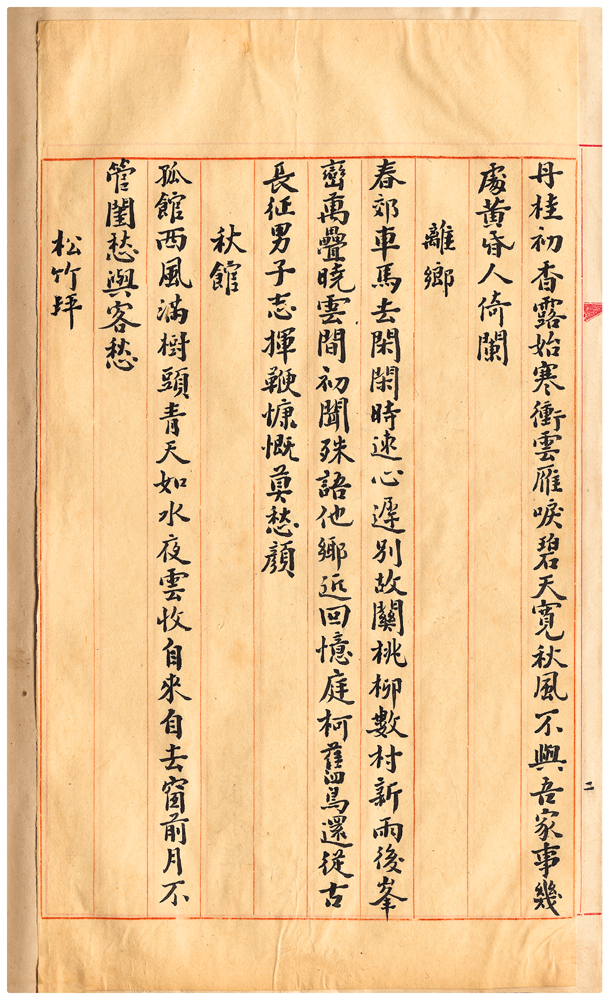 丹桂初香露始寒衝雲雁唳碧天寬秋風不與吾家事幾
處黃昏人倚闌
離鄉
春郊車馬去閑閑時速心遲別故關桃柳數村新雨後峯
巒萬疊曉雲間初聞殊語他鄉近回憶庭柯舊鳥還從古
長征男子志揮鞭慷慨莫愁顏
秋館
孤館西風滿樹頭青天如水夜雲收自來自去窗前月不
管閨愁與客愁
松竹坪
二